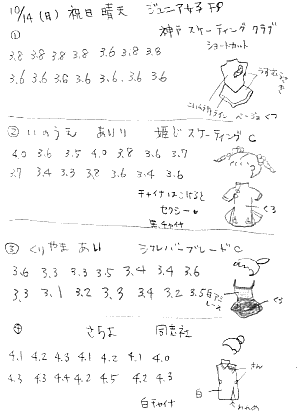 10/14 (月) 祝日 晴天 ジュニア女子 FP
① 神戸 スケーティング クラブ
ショートカット
3.8 3.8 3.8 3.8 3.6 3.8 3.8
3.6 3.6 3.6 3.6 3.6 3.6
ベージュ くつ
② いのうえ ありり 姫じ スケーティング C
4.0 3.6 3.5 4.0 3.8 3.6 3.7
3.7 3.4 3.3 3.8 3.6 3.4 3.6
チャイナは
セクシー
黒チャイナ
くろ
③ くりやま あい シルバーブレード C
3.6 3.3 3.3 3.5 3.4 3.4 3.6
3.3 3.1 3.2 3.3 3.4 3.2 3.5
くろ
④ さちよ 同志社
4.1 4.2 4.3 4.1 4.2 4.1 4.0
4.3 4.3 4.4 4.2 4.5 4.2 4.3
きん
白
白チャイナ